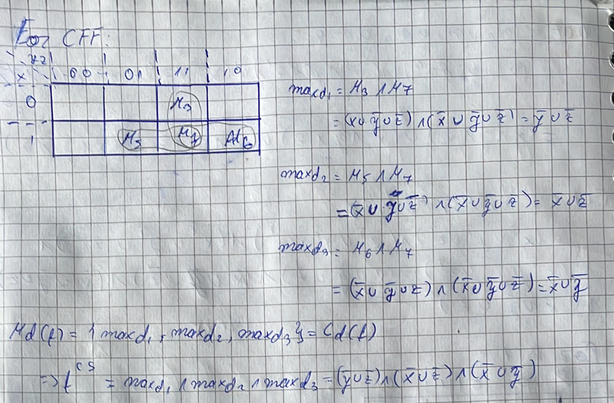 For CFF:
x yz 00 01 11 10
0 M₃
1 M₅ M₇ M₆
maxd₁ = M₃ ∧ M₇
= (x∪y̅∪z̅) ∧ (x̅∪y̅∪z̅) = y̅∪z̅
maxd₂ = M₅ ∧ M₇
= (x̅∪ y∪z̅) ∧ (x̅∪y̅∪z̅) = x̅∪z̅
maxd₃ = M₆ ∧ M₇
= (x̅∪y̅∪z) ∧ (x̅∪y̅∪z̅) = x̅∪y̅
Md(f) = { maxd₁, maxd₂, maxd₃} = Cd(f)
=> f^CS = maxd₁ ∧ maxd₂ ∧ maxd₃ = (y̅∪z̅) ∧ (x̅∪z̅) ∧ (x̅∪y̅)